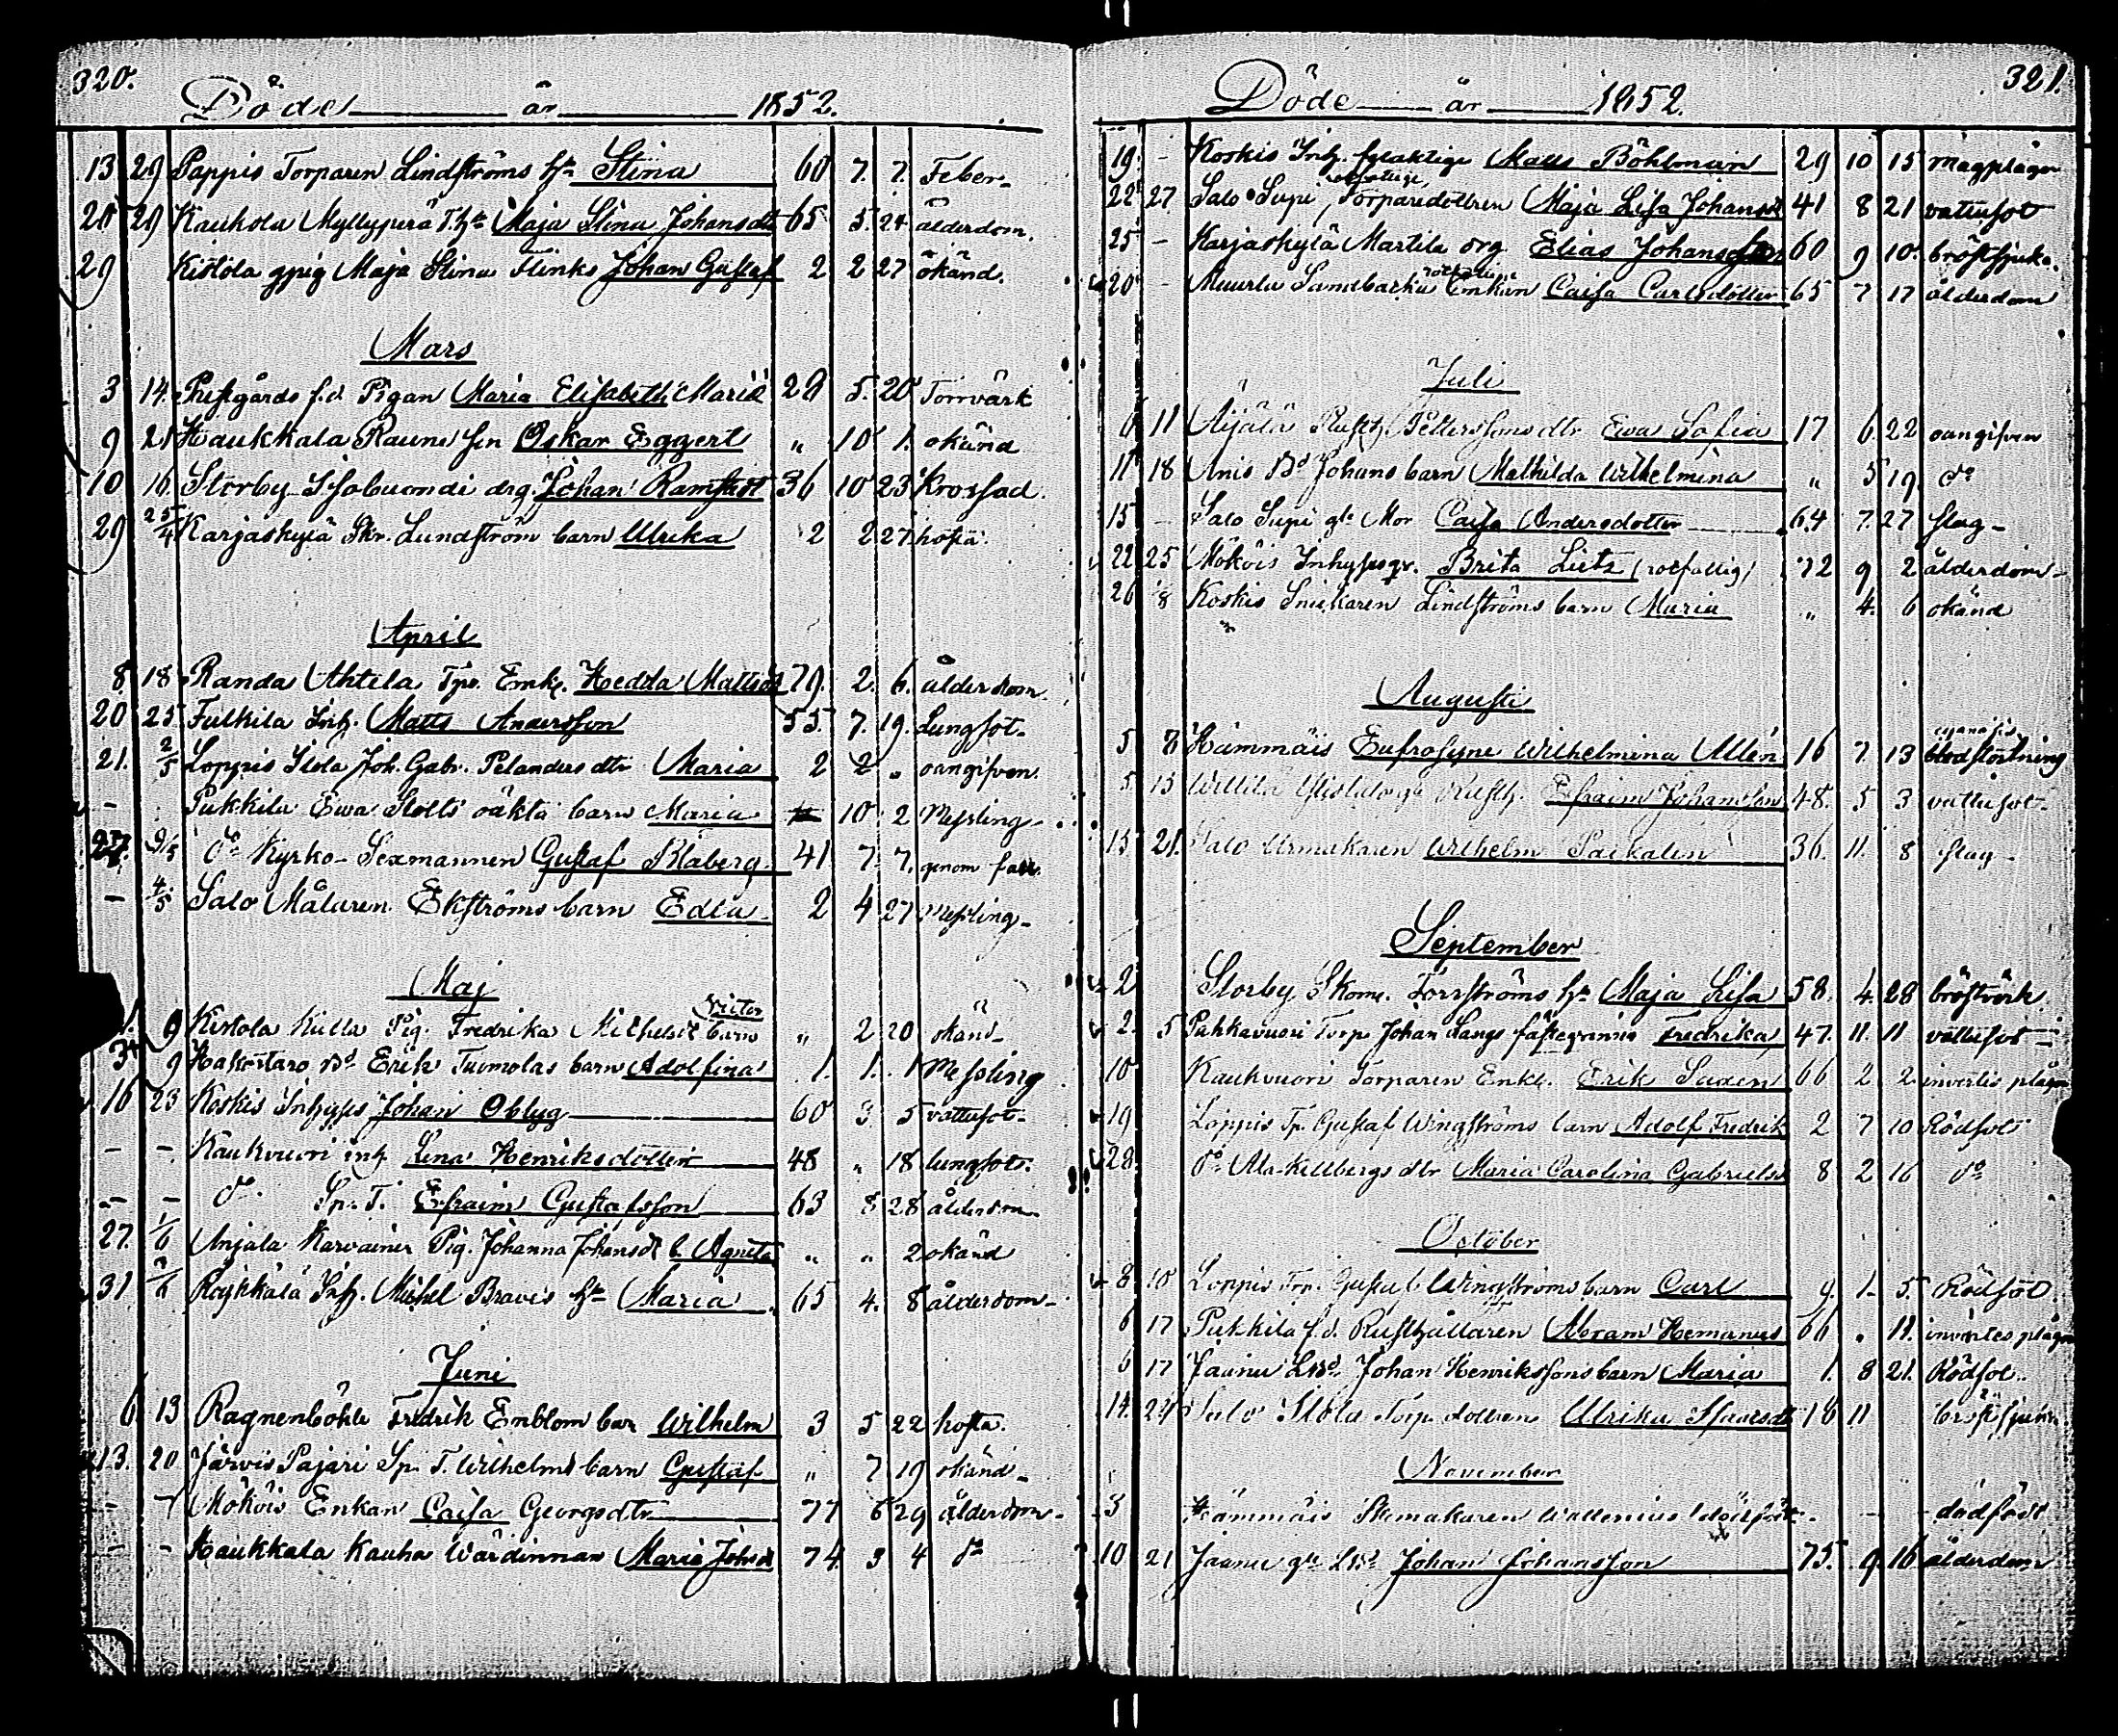 320.
Döde år 1852.
13 29 Pappis Torparen Lindströms h. Stina 60 7. 7. Feber
20 29 Kaukola Myllyperä T.h. Maja Stina Johansdtr 65 5. 24 ålderdom.
29 Kistola gpig Maja Stina Flinks Johan Gustaf 2 2 27 okänd.
Mars
3 14. Prestgårds f.d. Pigan Maria Elisabeth Mariä 28 5. 20 Tornvärk
9 21 Haukkala Rauni son Oskar Eggert " 10 1. okänd
10 16. Storby drg. Johan Ramstedt 36 10 23 Krossad.
29 25/4 Karjaskylä Skr. Lundström barn Ulrika 2 2 27 hosta.
April
8 18 Randa Ahtela Tpe. Enk. Hedda Mattsdt 79. 2. 6. ålderdom.
20 25 Fulkila Inh. Matts Andersson 55. 7. 19. Lungsot.
21. 2/5 Loppis Isola Joh. Gabr. Pelanders dtr Maria 2 2 " oangifven.
- Pukkila Ewa Stolts oäkta barn Maria 10 2 Messling
27. 9/5 do Kyrko-Sexmannen Gustaf Blåberg 41 7 7. genom fall.
- 4/5 Salo Målaren Ekströms barn Edla 2 4 27 Messling
Maj
1. 9 Kistola Kulla Pig. Fredrika Michelsdt barn Victor " 2 20 okänd
3 9 Hakostaro Bd Erik Tuomolas barn Adolfina 1. 1. 1 Messling
16 23 Koskis Inhyses Johan Oblyg 60 3 5 vattusot.
- - Kaukvuori inh Lena Henriksdotter 48 " 18 lungsot.
- - do. Sp. T. Efraim Gustafsson 63 8 28 ålderdom
27. 1/6 Anjala Karvainen Pig. Johanna Johansdt b. Agneta " " 2 okänd
31 2/6 Röykkälä Inh. Mickel Bravis h. Maria 65 4. 8 ålderdom
Juni
6. 13 Ragnenböhle Fredrik Emblom bar Wilhelm 3 5 22 hosta.
13. 20 Järvis Pajari Sp. T. Wilhelms barn Gustaf " 7 19 okänd
- Mököis Enkan Caisa Georgsdtr 77 6 29 ålderdom
- - Haukkala Kauha Värdinnan Maria Johsdt 74. 3 4 do
321.
Döde år 1852.
19. - Koskis Inh. Matts Böhlman 29 10 15 magplågor
22 27 Salo Supi, rotfattige Torparedottren Maja Lisa Johansdt 41 8 21 vattusot
25 - Karjaskylä Martila drg. Elias Johansson 60 9 10. bröstsjuka.
20 - Muurla Sandbacka rotfattige Enkan Caisa Carlsdotter 65 7 17 ålderdom
Juli
6 11 Äijälä Rusth. Petterssons dtr Ewa Sofia 17 6. 22 oangifven
11 18 Anis Bd Johans barn Mathilda Wilhelmina " 5 19. do
15 - Salo Supi gla Mor Caisa Andersdotter 64 7. 27 slag
22 25 Mököis Inhyses gr. Brita Lietz (rotfattig) 72 9 2 ålderdom
26 1/8 Koskis Snickaren Lindströms barn Maria " 4. 6 okänd
Augusti
5 8 Hämmäis Eufrosyne Wilhelmina Ullén 16 7. 13 blodstörtning
5. 15 Efraim Johansson 48. 5 3 vattusot.
15 21. Salo Urmakaren Wilhelm Paikalen 36. 11. 8 slag
September
2 Storby Skom. Forsströms h. Maja Lisa 58. 4. 28 bröstvärk
2. 5 Pukkavuori Torp. Johan Langs fästeqvinna Fredrika 47. 11. 11 vattusot
10 Kaukvuori Torparen Enkl. Erik Saxen 66 2 2 invertis plågor
19 Loppis Tp. Gustaf Wingströms barn Adolf Fredrik 2 7 10 Rödsot
28 do Ala-Killbergs dtr Maria Carolina Gabrielsdt 8 2 16 do
October
8 10 Loppis Trp. Gustaf Wingströms barn Carl 9. 1. 5. Rödsot
6 17 Pukkila f.d. Rusthållaren Abram Hemanus 66 " 11. invertes plågor
6 17 Jaanu Lbd. Johan Henrikssons barn Maria 1. 8 21. Rödsot.
14. 24 Salo Isola Torp. dottren Ulrika Isaacsdt 18 11 bröstsjuka
November
3 Hämmäis Skomakaren Wallenius dödfödt - - - dödfödt
10 21 Jaanu gle Lbd. Johan Johansson 75. 9. 16 ålderdom